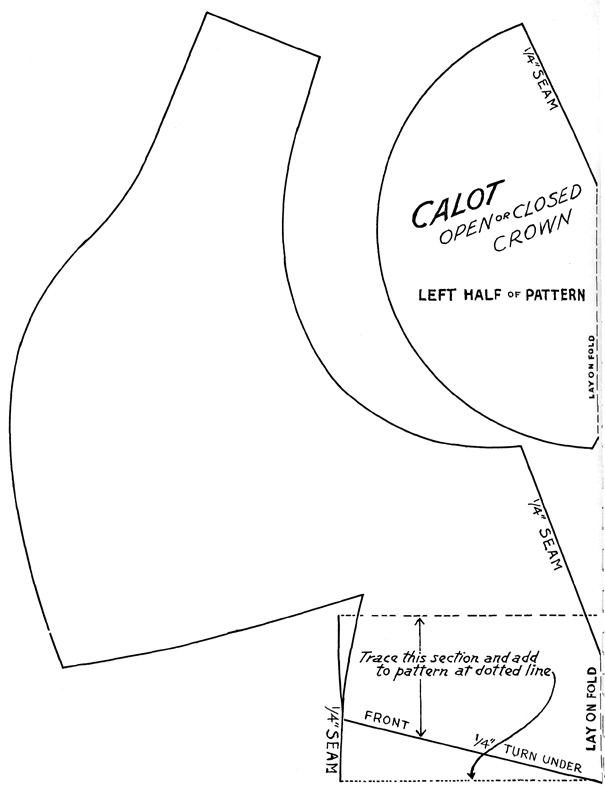 1/4" SEAM
CALOT
OPEN OR CLOSED
CROWN
LEFT HALF OF PATTERN
LAY ON FOLD
1/4" SEAM
Trace this section and add
to pattern at dotted line
LAY ON FOLD
1/4" SEAM
FRONT
1/4" TURN UNDER